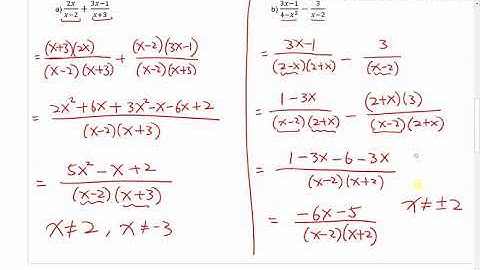 a) \frac{2x}{x-2} + \frac{3x-1}{x+3}
= \frac{(x+3)(2x)}{(x-2)(x+3)} + \frac{(x-2)(3x-1)}{(x-2)(x+3)}
= \frac{2x^2+6x+3x^2-x-6x+2}{(x-2)(x+3)}
= \frac{5x^2-x+2}{(x-2)(x+3)}
x≠2, x≠-3
b) \frac{3x-1}{4-x^2} - \frac{3}{x-2}
= \frac{3x-1}{(2-x)(2+x)} - \frac{3}{(x-2)}
= \frac{1-3x}{(x-2)(2+x)} - \frac{(2+x)(3)}{(x-2)(2+x)}
= \frac{1-3x-6-3x}{(x-2)(x+2)}
= \frac{-6x-5}{(x-2)(x+2)}
x≠±2